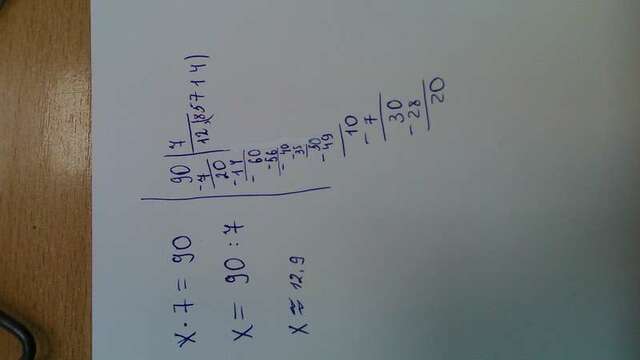 x · 7 = 90
x = 90 : 7
x ≈ 12,9
90 | 7
-7 | 12,(85714)
20
-14
60
-56
40
-35
50
-49
10
-7
30
-28
20